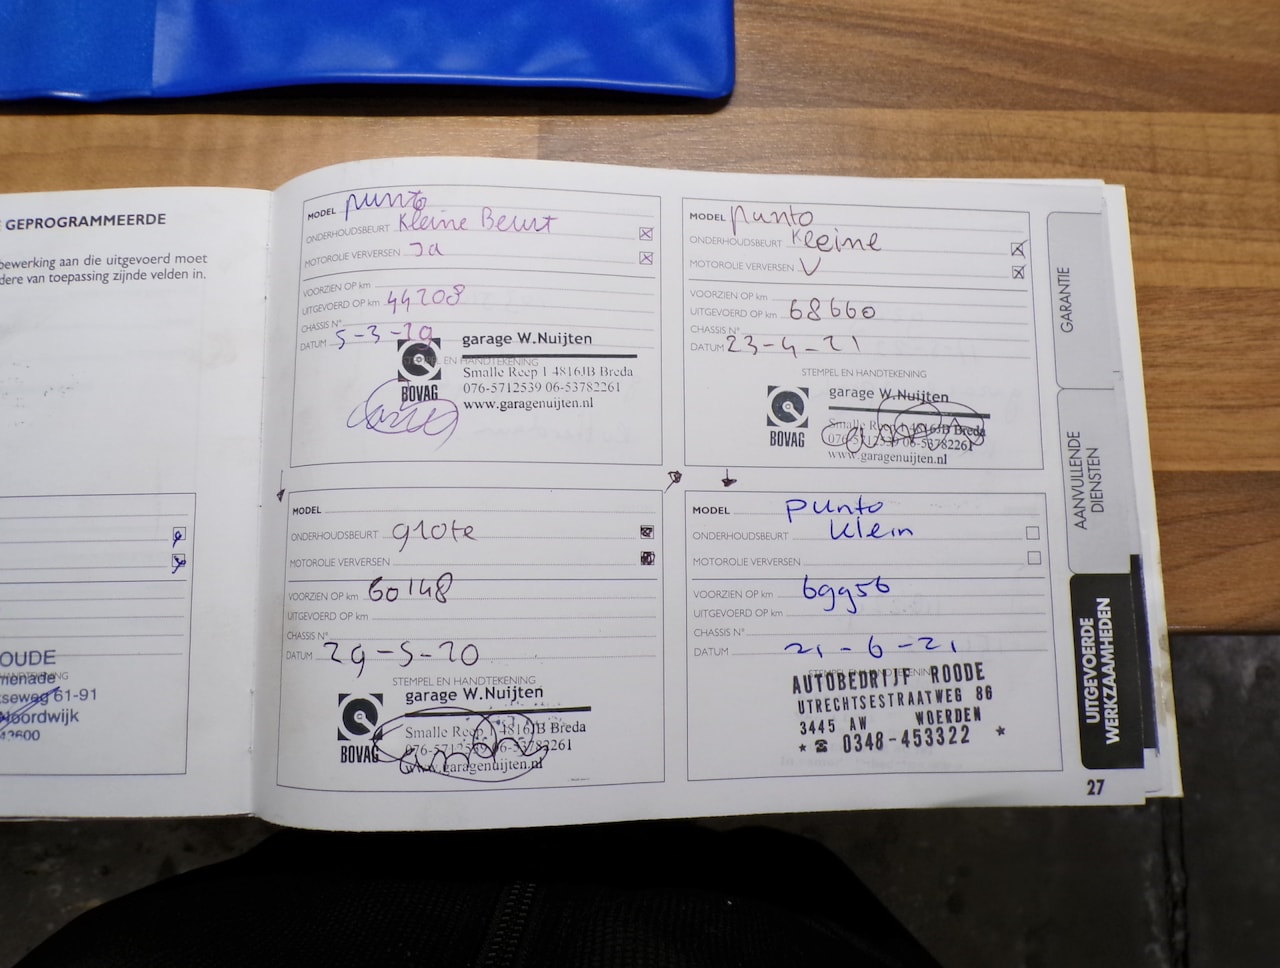 GEPROGRAMMEERDE
bewerking aan die uitgevoerd moet
dere van toepassing zijnde velden in.
OUDE
menade
tseweg 61-91
Noordwijk
MODEL punto
ONDERHOUDSBEURT Kleine Beurt
MOTOROLIE VERVERSEN Ja
VOORZIEN OP km
UITGEVOERD OP km 44208
CHASSIS N°
DATUM 5-3-19
STEMPEL EN HANDTEKENING
BOVAG
garage W.Nuijten
Smalle Reep 1 4816JB Breda
076-5712539 06-53782261
www.garagenuijten.nl
MODEL punto
ONDERHOUDSBEURT Kleine
MOTOROLIE VERVERSEN V
VOORZIEN OP km
UITGEVOERD OP km 68660
CHASSIS N°
DATUM 23-4-21
STEMPEL EN HANDTEKENING
BOVAG
garage W.Nuijten
Smalle Reep 1 4816JB Breda
076-5712539 06-53782261
www.garagenuijten.nl
MODEL
ONDERHOUDSBEURT grote
MOTOROLIE VERVERSEN
VOORZIEN OP km 60148
UITGEVOERD OP km
CHASSIS N°
DATUM 29-5-20
STEMPEL EN HANDTEKENING
BOVAG
garage W.Nuijten
Smalle Reep 1 4816JB Breda
076-5712539 06-53782261
www.garagenuijten.nl
MODEL punto
ONDERHOUDSBEURT klein
MOTOROLIE VERVERSEN
VOORZIEN OP km 69956
UITGEVOERD OP km
CHASSIS N°
DATUM 21-6-21
STEMPEL EN HANDTEKENING
AUTOBEDRIJF ROODE
UTRECHTSESTRAATWEG 86
3445 AW WOERDEN
* ☎ 0348-453322 *
GARANTIE
AANVULLENDE
DIENSTEN
UITGEVOERDE
WERKZAAMHEDEN
27